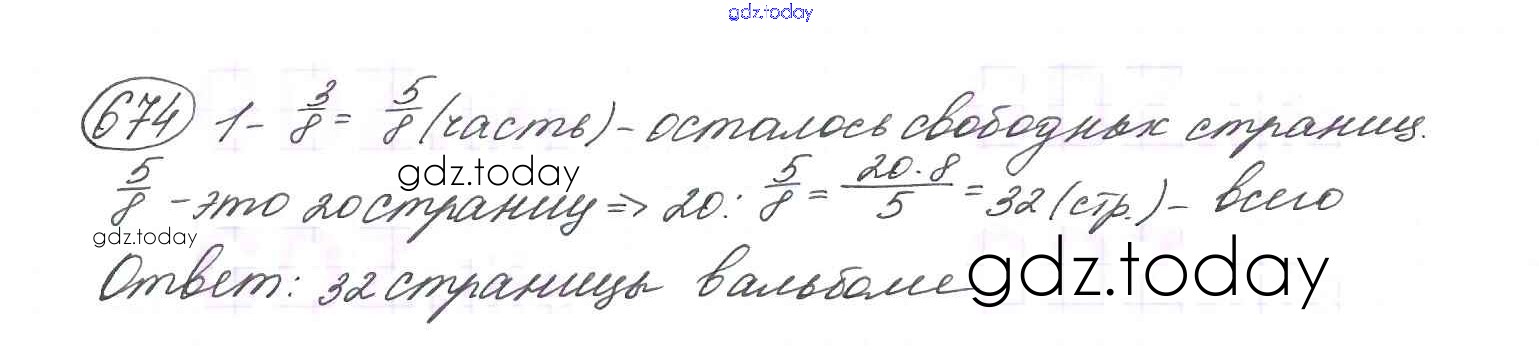 gdz.today
674 1 - 3/8 = 5/8 (часть) - осталось свободных страниц.
gdz.today
5/8 - это 20 страниц => 20 : 5/8 = 20·8/5 = 32 (стр.) - всего
gdz.today
Ответ: 32 страницы в альбоме
gdz.today